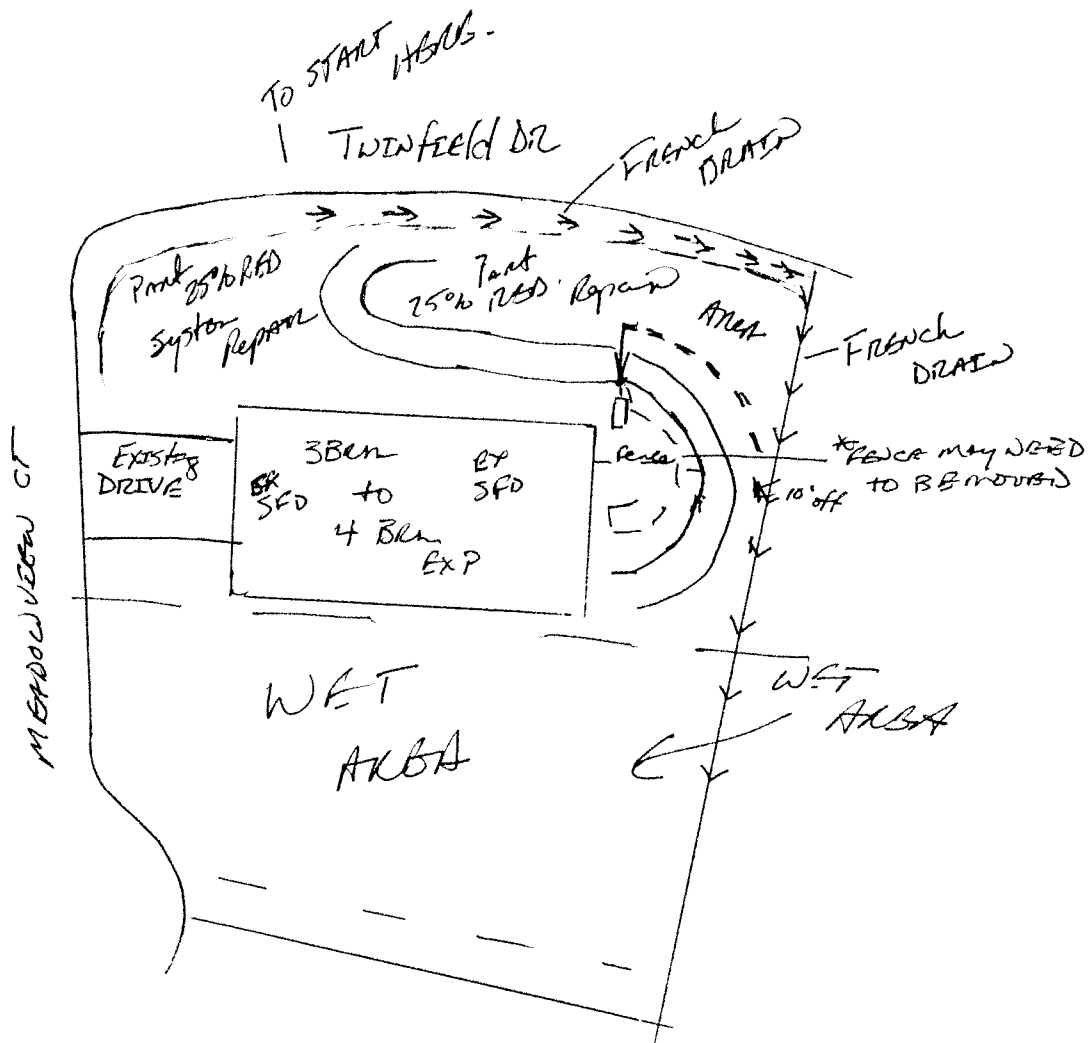 TO START HERE.
TWINFIELD DR
FRENCH
DRAIN
Part 25% RED
System
Repair
Part
25% RED. Repair
AREA
FRENCH
DRAIN
Existing
DRIVE
3 BRM
EX
SFD
to
EX
SFD
4 BRM
EXP
Fence
*FENCE MAY NEED
TO BE MOVED
10' off
MEADOWVIEW CT
WET
AREA
WET
AREA